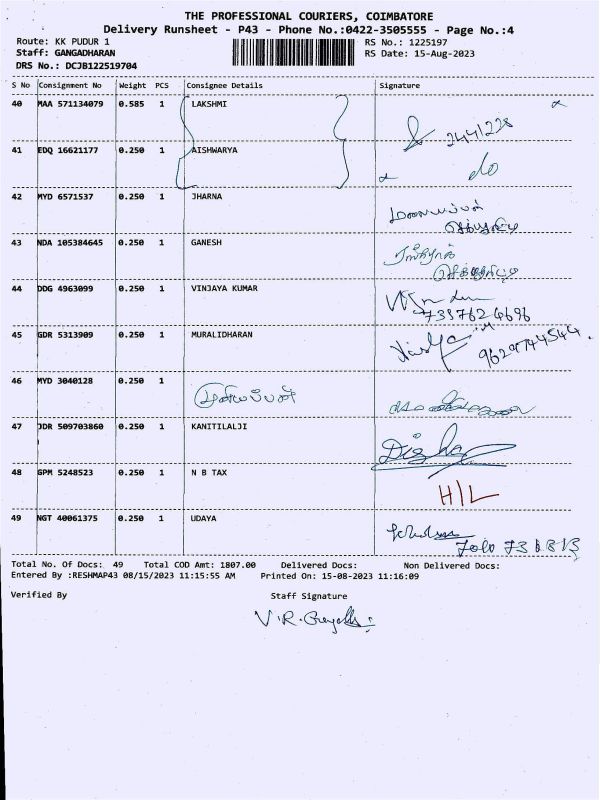 THE PROFESSIONAL COURIERS, COIMBATORE
Delivery Runsheet - P43 - Phone No.:0422-3505555 - Page No.:4
Route: KK PUDUR 1 RS No.: 1225197
Staff: GANGADHARAN RS Date: 15-Aug-2023
DRS No.: DCJB122519704
S No Consignment No Weight PCS Consignee Details Signature
40 MAA 571134079 0.585 1 LAKSHMI
2441228
41 EDQ 16621177 0.250 1 AISHWARYA do
42 MYD 6571537 0.250 1 JHARNA
43 NDA 105384645 0.250 1 GANESH
44 DDG 4963099 0.250 1 VINJAYA KUMAR
7397624696
45 GDR 5313909 0.250 1 MURALIDHARAN
9629744544
46 MYD 3040128 0.250 1
47 JDR 509703860 0.250 1 KANITILALJI
48 GPM 5248523 0.250 1 N B TAX H/L
49 NGT 40061375 0.250 1 UDAYA
Total No. Of Docs: 49 Total COD Amt: 1807.00 Delivered Docs: Non Delivered Docs:
Entered By :RESHMAP43 08/15/2023 11:15:55 AM Printed On: 15-08-2023 11:16:09
Verified By Staff Signature